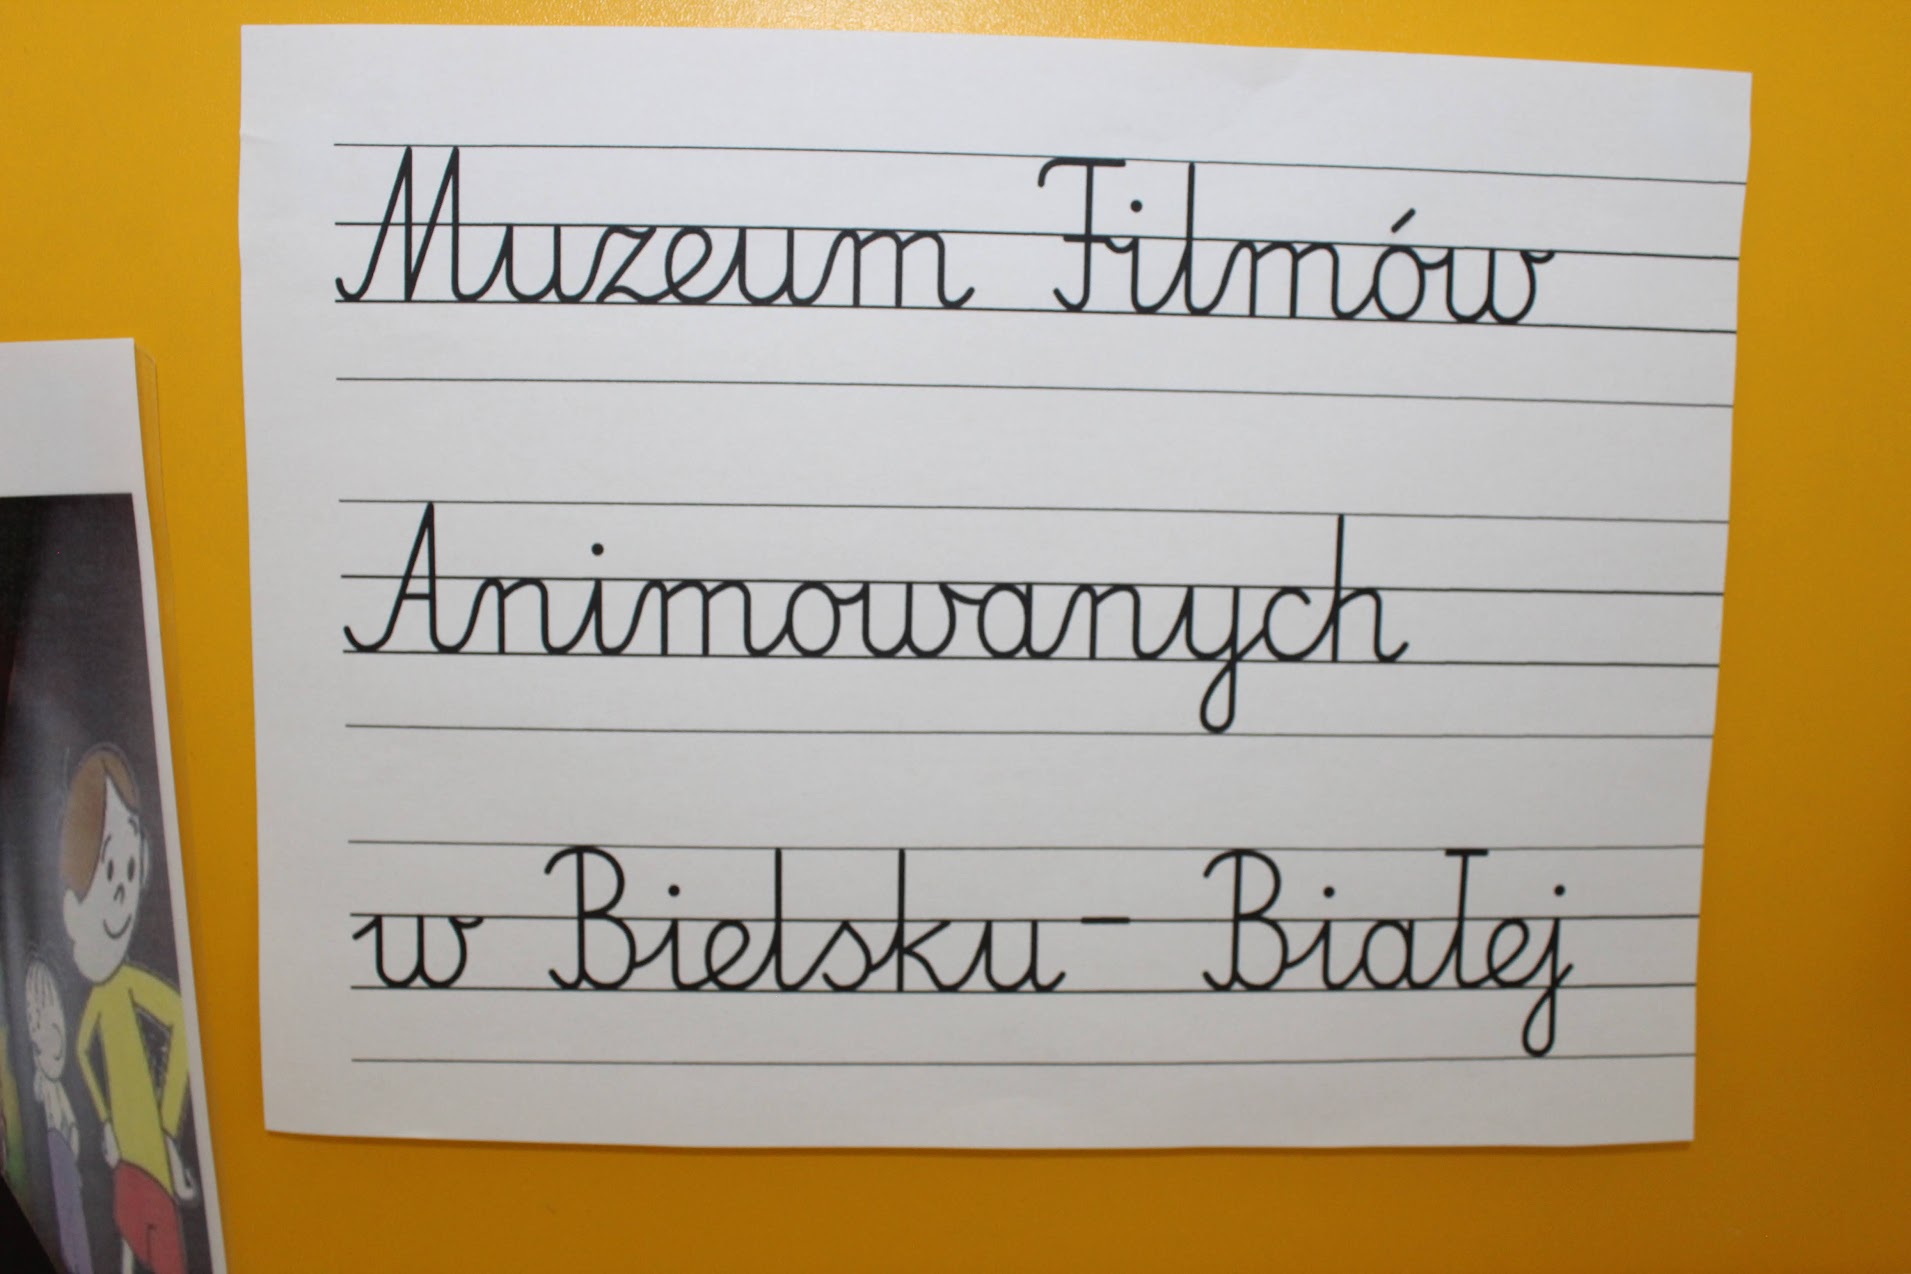 Muzeum Filmów
Animowanych
w Bielsku- Białej